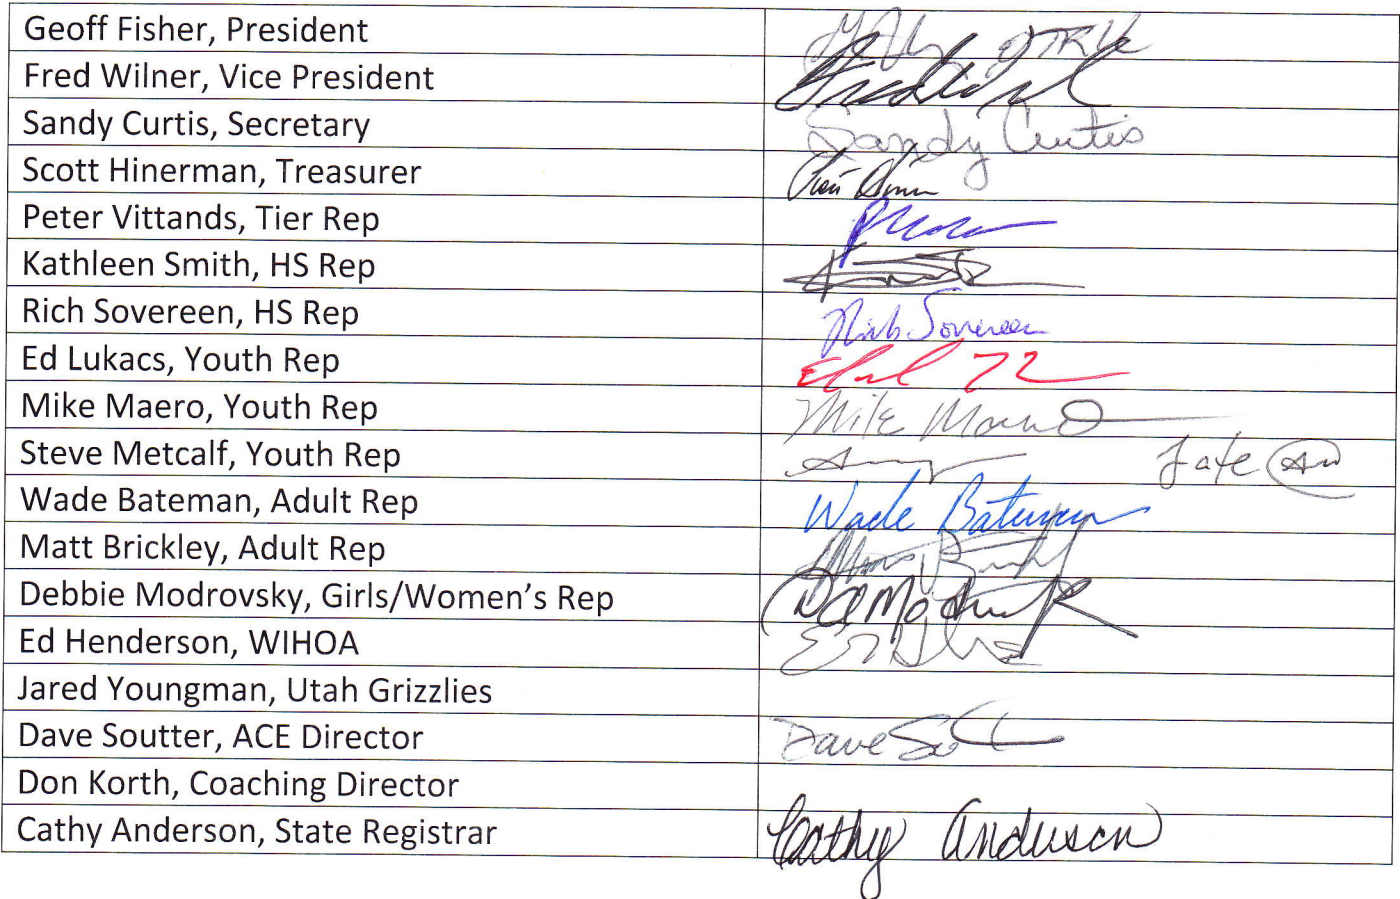 Geoff Fisher, President
Fred Wilner, Vice President
Sandy Curtis, Secretary Sandy Curtis
Scott Hinerman, Treasurer
Peter Vittands, Tier Rep
Kathleen Smith, HS Rep
Rich Sovereen, HS Rep Rich Sovereen
Ed Lukacs, Youth Rep 72
Mike Maero, Youth Rep Mike
Steve Metcalf, Youth Rep
Wade Bateman, Adult Rep Wade Bateman
Matt Brickley, Adult Rep
Debbie Modrovsky, Girls/Women's Rep
Ed Henderson, WIHOA
Jared Youngman, Utah Grizzlies
Dave Soutter, ACE Director Dave
Don Korth, Coaching Director
Cathy Anderson, State Registrar Cathy Anderson